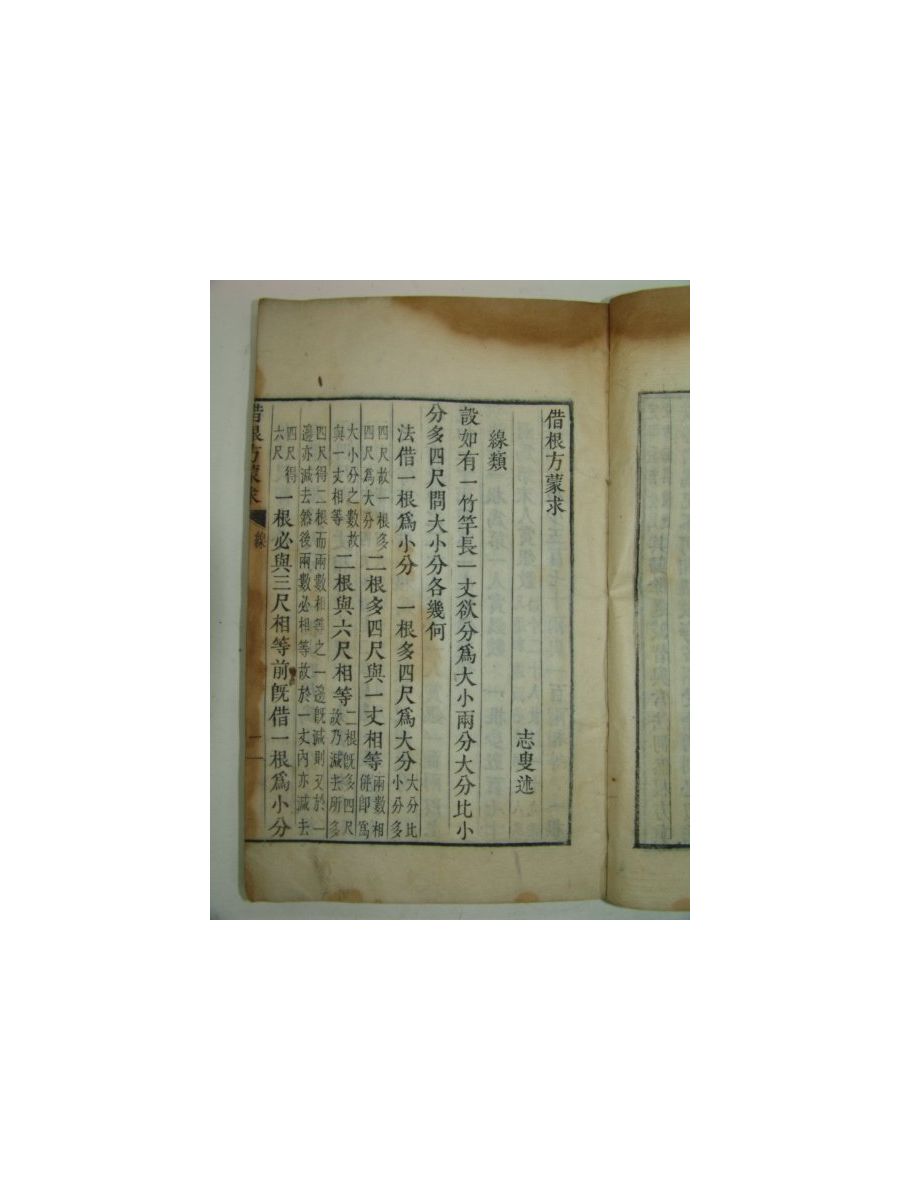 借根方蒙求
志叟述
線類
設如有一竹竿長一丈欲分爲大小兩分大分比小
分多四尺問大小分各幾何
法借一根爲小分　一根多四尺爲大分大分比小分多
四尺故一根多四尺爲大分　二根多四尺與一丈相等兩數相併卽爲
大小分之數故與一丈相等　二根與六尺相等二根旣多四尺故乃減去所多
四尺得二根而兩數相等之一邊旣減則又於一
邊亦減去然後兩數必相等故於一丈內亦減去
四尺得六尺　一根必與三尺相等前旣借一根爲小分
借根方蒙求　線　一